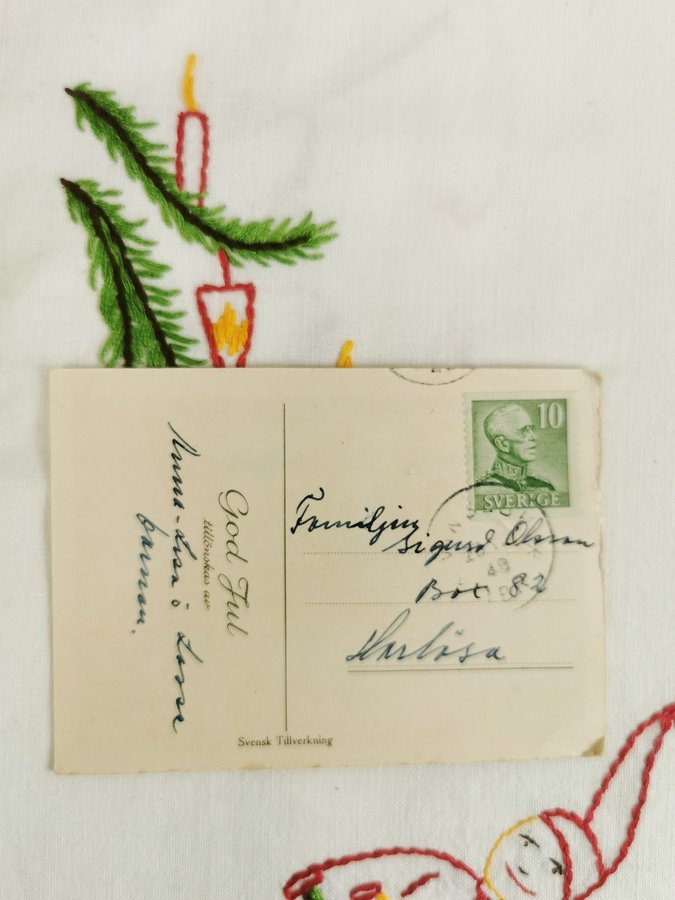 God Jul
tillönskas av
Anna-Lisa o Lasse
barnen.
10
SVERIGE
Familjen
Sigurd Olsson
Box 82
Harlösa
Svensk Tillverkning